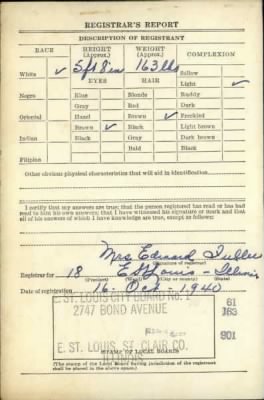 REGISTRAR'S REPORT
DESCRIPTION OF REGISTRANT
RACE HEIGHT (Approx.) WEIGHT (Approx.) COMPLEXION
White ✓ 5 ft 8 in 163 lbs Sallow
EYES HAIR Light ✓
Negro Blue Blonde Ruddy
Gray Red Dark
Oriental Hazel Brown ✓ Freckled
Brown ✓ Black Light brown
Indian Black Gray Dark brown
Bald Black
Filipino
Other obvious physical characteristics that will aid in identification
I certify that my answers are true; that the person registered has read or has had
read to him his own answers; that I have witnessed his signature or mark and that
all of his answers of which I have knowledge are true, except as follows:
Mrs Edward
Registrar for 18 E St Louis - Illinois
(Precinct) (City or county) (State)
Date of registration 16 Oct - 1940
E. ST. LOUIS CITY BOARD NO. 1
2747 BOND AVENUE
61
163
901
E. ST. LOUIS, ST. CLAIR CO.
ILLINOIS
STAMP OF LOCAL BOARD
(The stamp of the Local Board having jurisdiction of the registrant
shall be placed in the above space.)